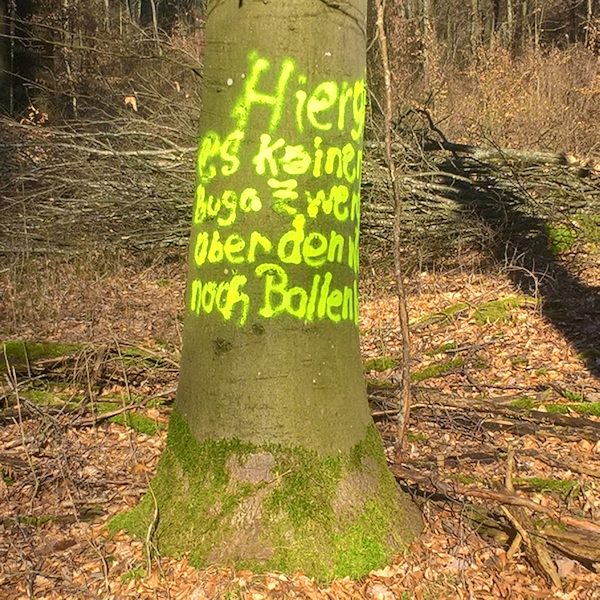 Hierg
es keiner
Buga Zwer
aber den W
noch Bollen